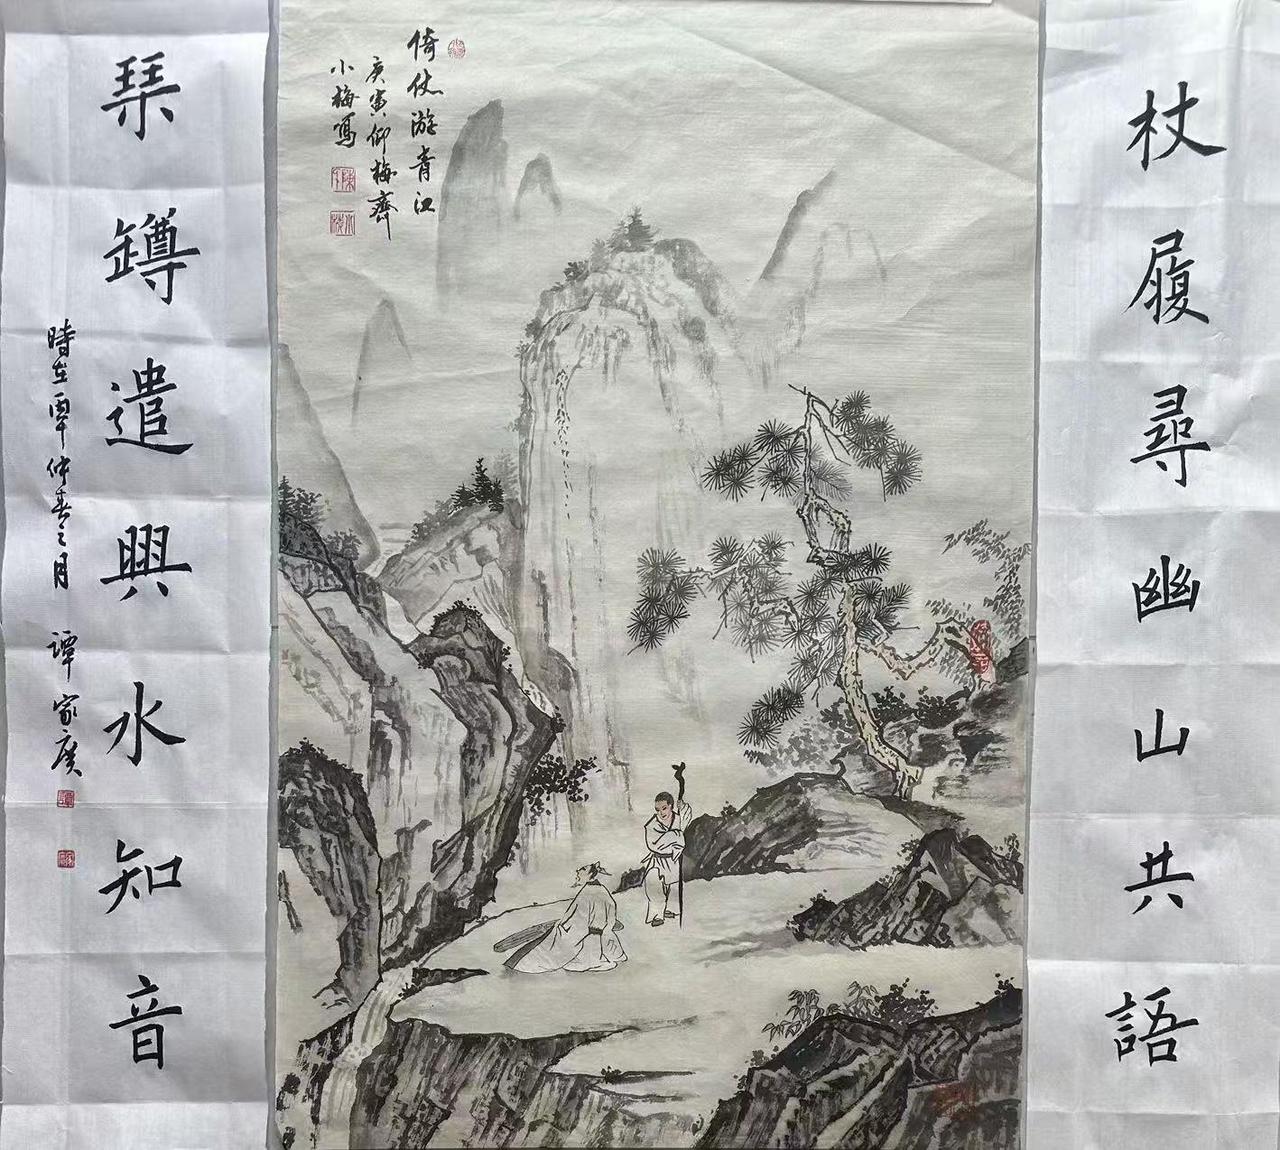 杖履尋幽山共語
琹罇遣興水知音
時在覃仲春之月 譚家廣
倚仗游青江
庚寅仰梅齋
小梅寫